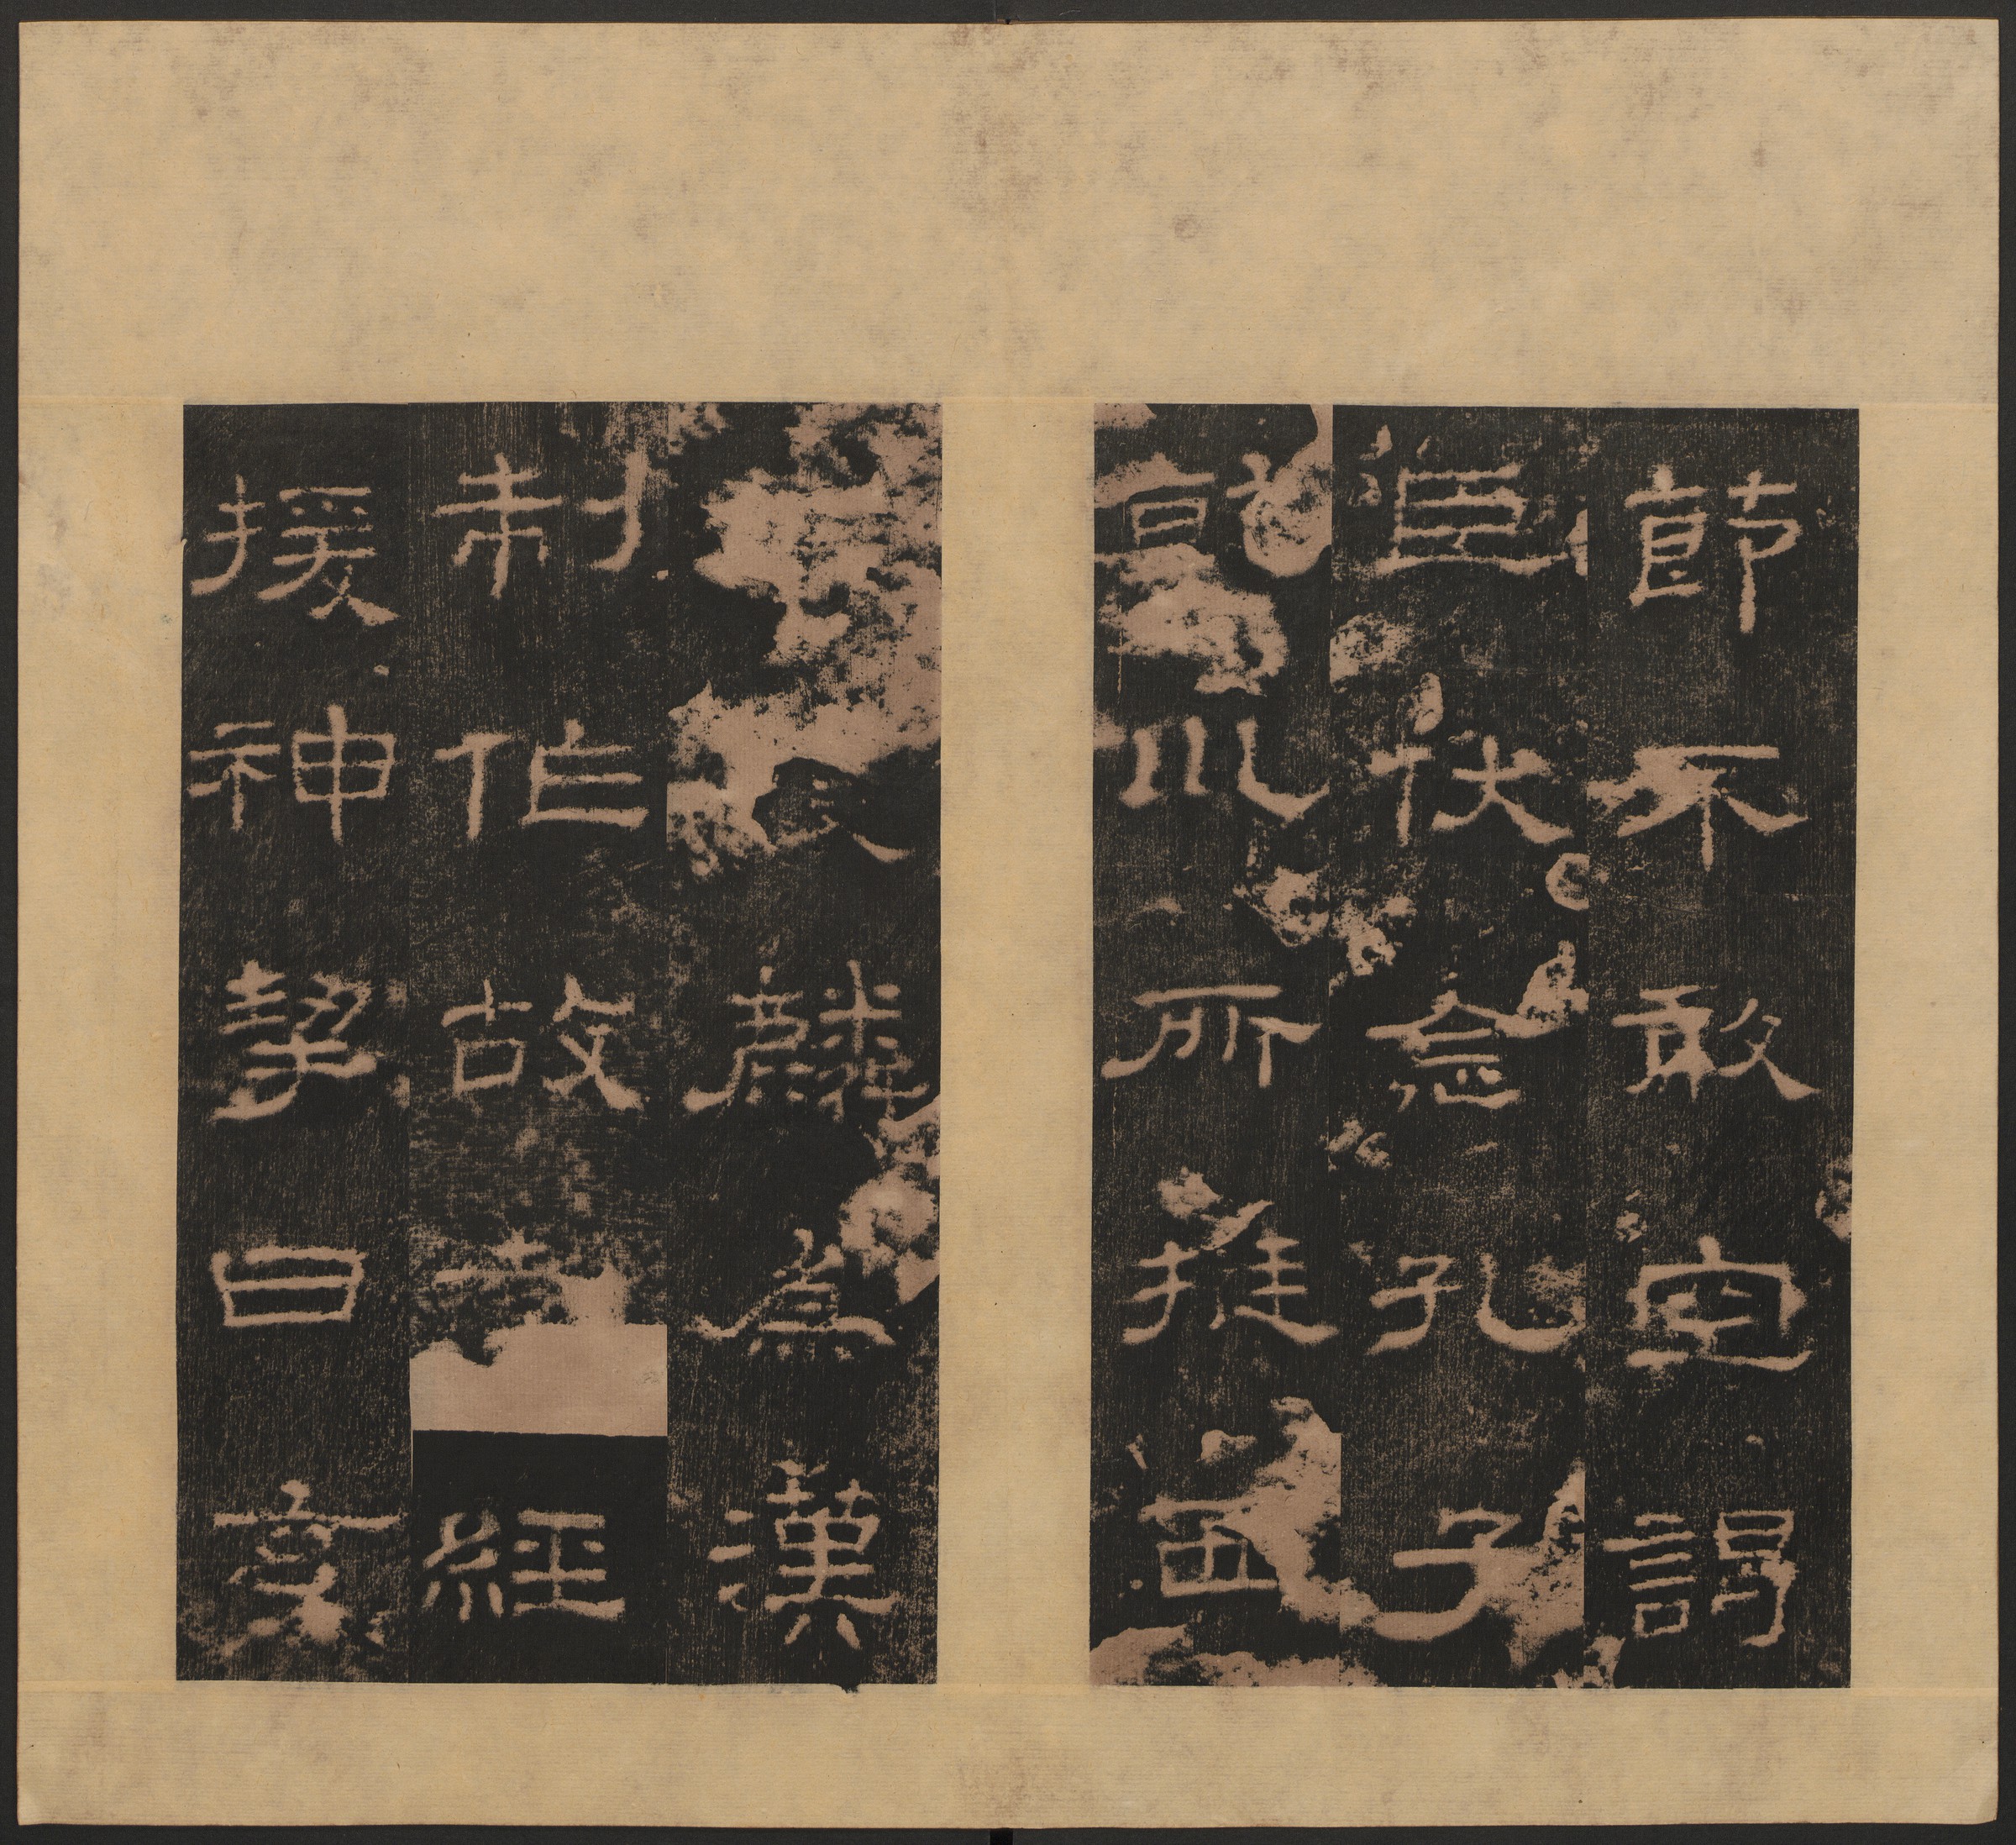 節不敢空謁
臣伏念孔子
乾坤所挺西
狩獲麟爲漢
制作故孝經
援神挈曰玄